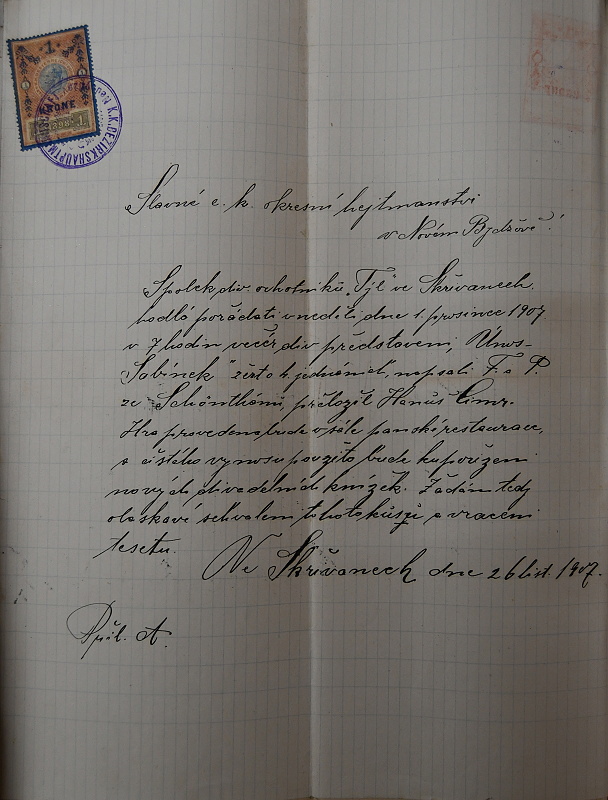 1
KRONE
1898
K.K. BEZIRKSHAUPTM
Slavné c. k. okresní hejtmanství
v Novém Bydžově!
Spolek div. ochotníků "Tyl" ve Skřivanech,
hodlá pořádati v neděli dne 1. prosince 1907
v 7 hodin večer div. představení, "Únos
Sabinek" žert o 4. jednáních, napsali F. a P.
ze Schönthánů, přeložil Hanuš
Hra provedena bude v sále panské restaurace,
a čistého výnosu použito bude ku pořízení
nových divadelních knížek. Žádám tedy
o laskavé schválení tohoto kusu a vrácení
textu.
Ve Skřivanech dne 26 list. 1907.
Příl. A.